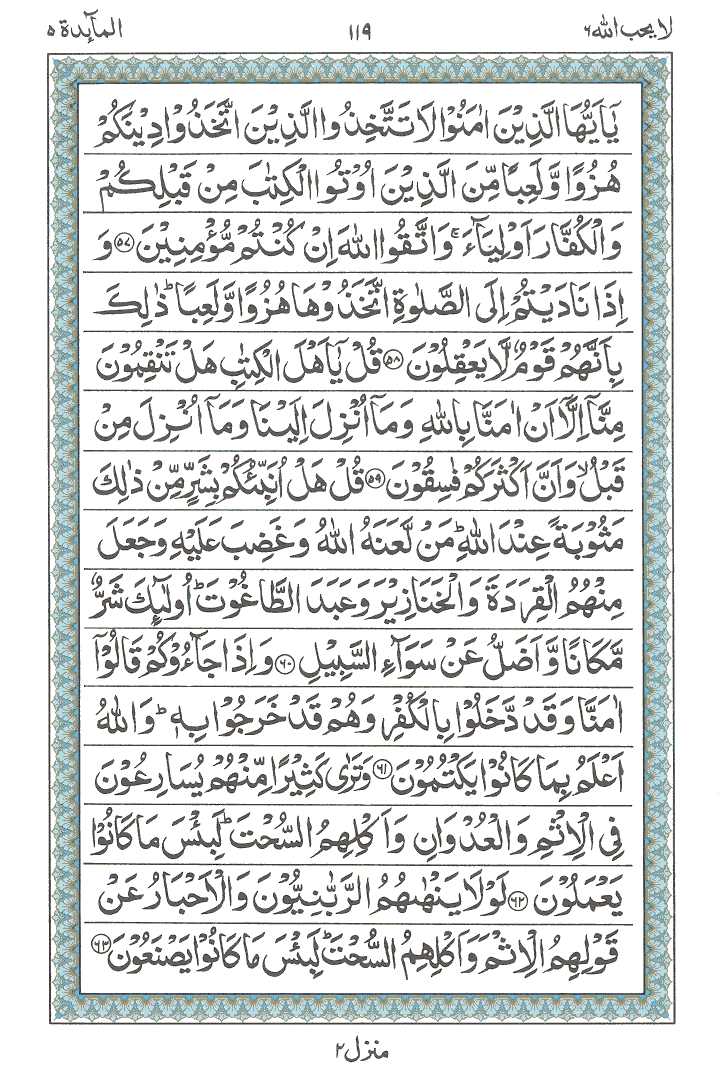 لا یحب الله ۶ ۱۱۹ المآىِٕدة ۵
یٰۤاَیُّهَا الَّذِیْنَ اٰمَنُوْا لَا تَتَّخِذُوا الَّذِیْنَ اتَّخَذُوْا دِیْنَكُمْ
هُزُوًا وَّ لَعِبًا مِّنَ الَّذِیْنَ اُوْتُوا الْكِتٰبَ مِنْ قَبْلِكُمْ
وَ الْكُفَّارَ اَوْلِیَآءَ ۚ وَ اتَّقُوا اللّٰهَ اِنْ كُنْتُمْ مُّؤْمِنِیْنَ ﴿۵۷﴾ وَ
اِذَا نَادَیْتُمْ اِلَى الصَّلٰوةِ اتَّخَذُوْهَا هُزُوًا وَّ لَعِبًا ؕ ذٰلِكَ
بِاَنَّهُمْ قَوْمٌ لَّا یَعْقِلُوْنَ ﴿۵۸﴾ قُلْ یٰۤاَهْلَ الْكِتٰبِ هَلْ تَنْقِمُوْنَ
مِنَّاۤ اِلَّاۤ اَنْ اٰمَنَّا بِاللّٰهِ وَ مَاۤ اُنْزِلَ اِلَیْنَا وَ مَاۤ اُنْزِلَ مِنْ
قَبْلُ ۙ وَ اَنَّ اَكْثَرَكُمْ فٰسِقُوْنَ ﴿۵۹﴾ قُلْ هَلْ اُنَبِّئُكُمْ بِشَرٍّ مِّنْ ذٰلِكَ
مَثُوْبَةً عِنْدَ اللّٰهِ ؕ مَنْ لَّعَنَهُ اللّٰهُ وَ غَضِبَ عَلَیْهِ وَ جَعَلَ
مِنْهُمُ الْقِرَدَةَ وَ الْخَنَازِیْرَ وَ عَبَدَ الطَّاغُوْتَ ؕ اُولٰٓىِٕكَ شَرٌّ
مَّكَانًا وَّ اَضَلُّ عَنْ سَوَآءِ السَّبِیْلِ ﴿۶۰﴾ وَ اِذَا جَآءُوْكُمْ قَالُوْۤا
اٰمَنَّا وَ قَدْ دَّخَلُوْا بِالْكُفْرِ وَ هُمْ قَدْ خَرَجُوْا بِهٖ ؕ وَ اللّٰهُ
اَعْلَمُ بِمَا كَانُوْا یَكْتُمُوْنَ ﴿۶۱﴾ وَ تَرٰى كَثِیْرًا مِّنْهُمْ یُسَارِعُوْنَ
فِی الْاِثْمِ وَ الْعُدْوَانِ وَ اَكْلِهِمُ السُّحْتَ ؕ لَبِئْسَ مَا كَانُوْا
یَعْمَلُوْنَ ﴿۶۲﴾ لَوْ لَا یَنْهٰىهُمُ الرَّبّٰنِیُّوْنَ وَ الْاَحْبَارُ عَنْ
قَوْلِهِمُ الْاِثْمَ وَ اَكْلِهِمُ السُّحْتَ ؕ لَبِئْسَ مَا كَانُوْا یَصْنَعُوْنَ ﴿۶۳﴾
منزل ۲